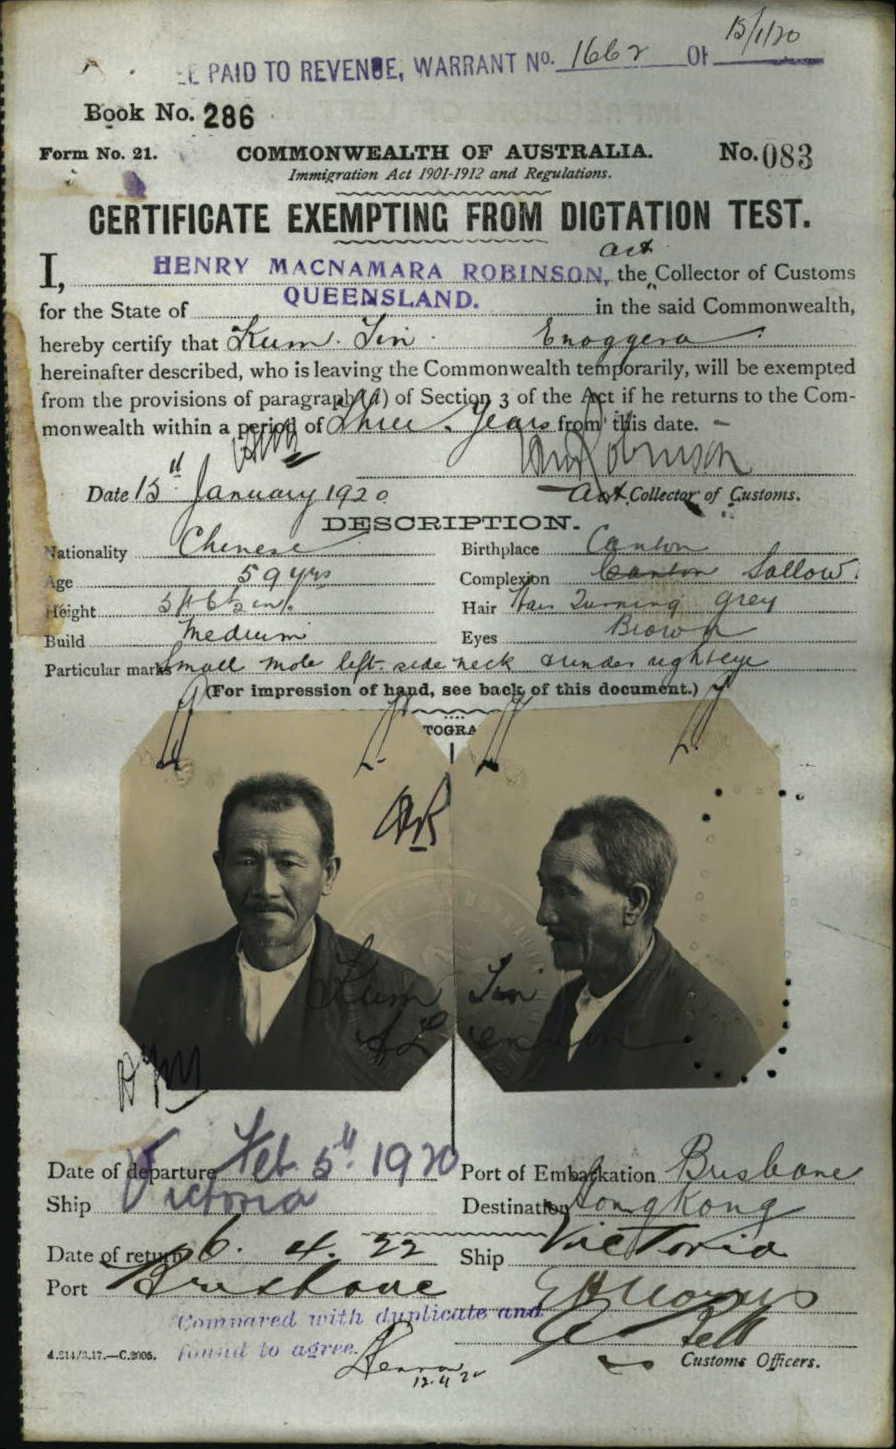 PAID TO REVENUE, WARRANT No. 1662 Of 15/1/20
Book No. 286
Form No. 21. COMMONWEALTH OF AUSTRALIA. No. 083
Immigration Act 1901-1912 and Regulations.
CERTIFICATE EXEMPTING FROM DICTATION TEST.
I, HENRY MACNAMARA ROBINSON, the act Collector of Customs
for the State of QUEENSLAND. in the said Commonwealth,
hereby certify that Kum Tin Enoggera
hereinafter described, who is leaving the Commonwealth temporarily, will be exempted
from the provisions of paragraph (a) of Section 3 of the Act if he returns to the Com-
monwealth within a period of Three Years from this date.
Robinson
Date 15th January 1920 Act. Collector of Customs.
DESCRIPTION.
Nationality Chinese Birthplace Canton
Age 59 yrs Complexion Canton Sallow
Height 5ft 6½ in. Hair Hair Turning grey
Build Medium Eyes Brown
Particular marks Small mole left side neck & under right eye
(For impression of hand, see back of this document.)
TOGRA
Kum Tin
Date of departure Feb 5th 1920 Port of Embarkation Brisbane
Ship Victoria Destination Hong Kong
Date of return 6. 4. 22 Ship Victoria
Port Brisbane
Compared with duplicate and
found to agree.
12.4.22
Customs Officers.